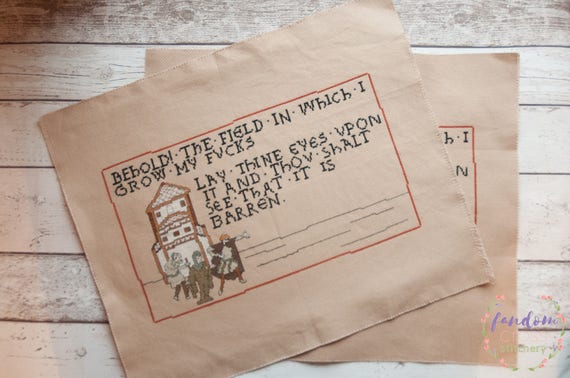 BEHOLD! · THE · FIELD · IN · WHICH · I
GROW · MY · FVCKS
LAY · THINE · EYES · VPON
IT · AND · THOV · SHALT
SEE · THAT · IT · IS
BARREN.
CH · I
N
fandom